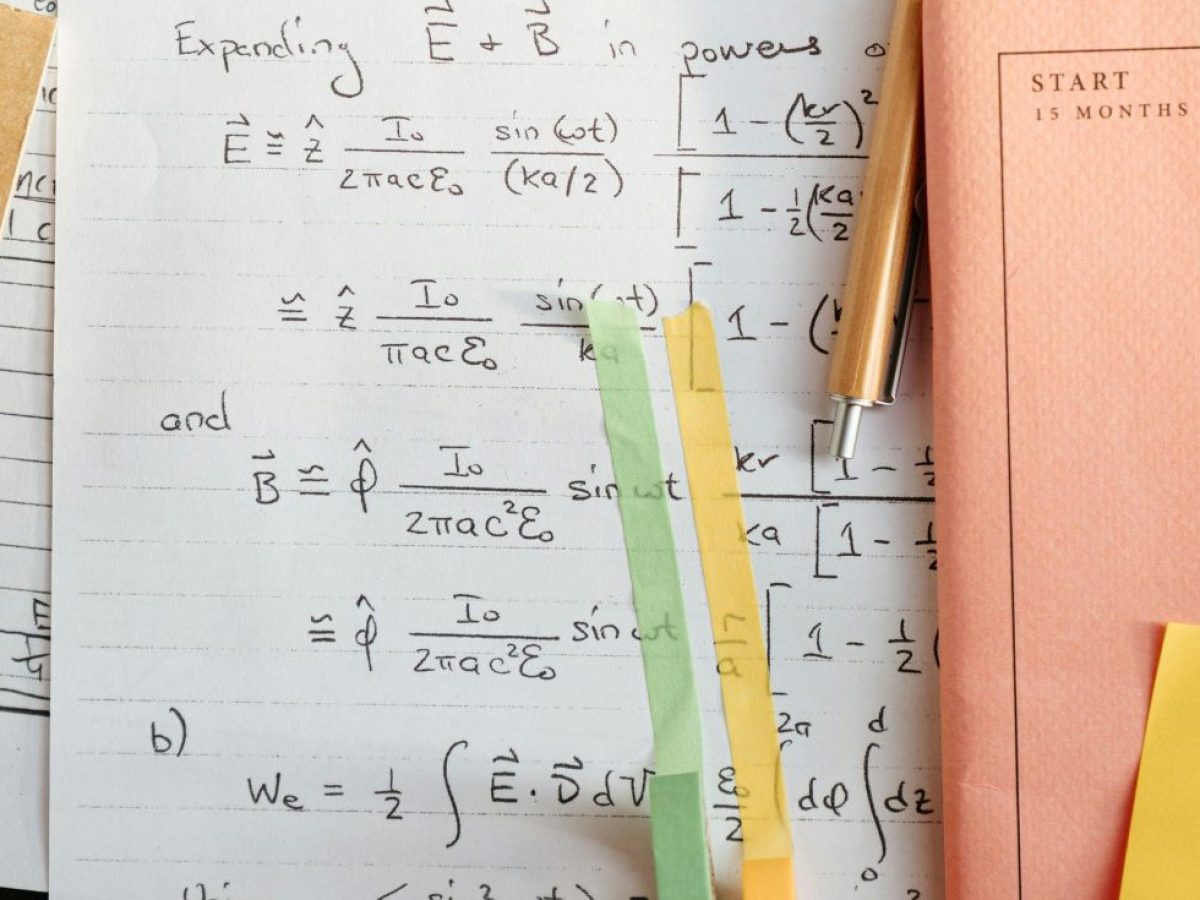 Expanding E⃗ + B⃗ in powers
E⃗ ≅ ẑ I₀/(2πacε₀) sin(ωt)/(ka/2) [1 - (kr/2)²
[1 - ½(ka/2
≅ ẑ I₀/(πacε₀) sin(ωt)/ka [1 - (
and
B⃗ ≅ φ̂ I₀/(2πac²ε₀) sin ωt kr [1 - ½
ka [1 - ½
≅ φ̂ I₀/(2πac²ε₀) sin ωt r/a [1 - ½(
b)
We = ½ ∫ E⃗ · D⃗ dV ε₀/2 ∫ 2π dφ ∫₀ᵈ dz
START
15 MONTHS